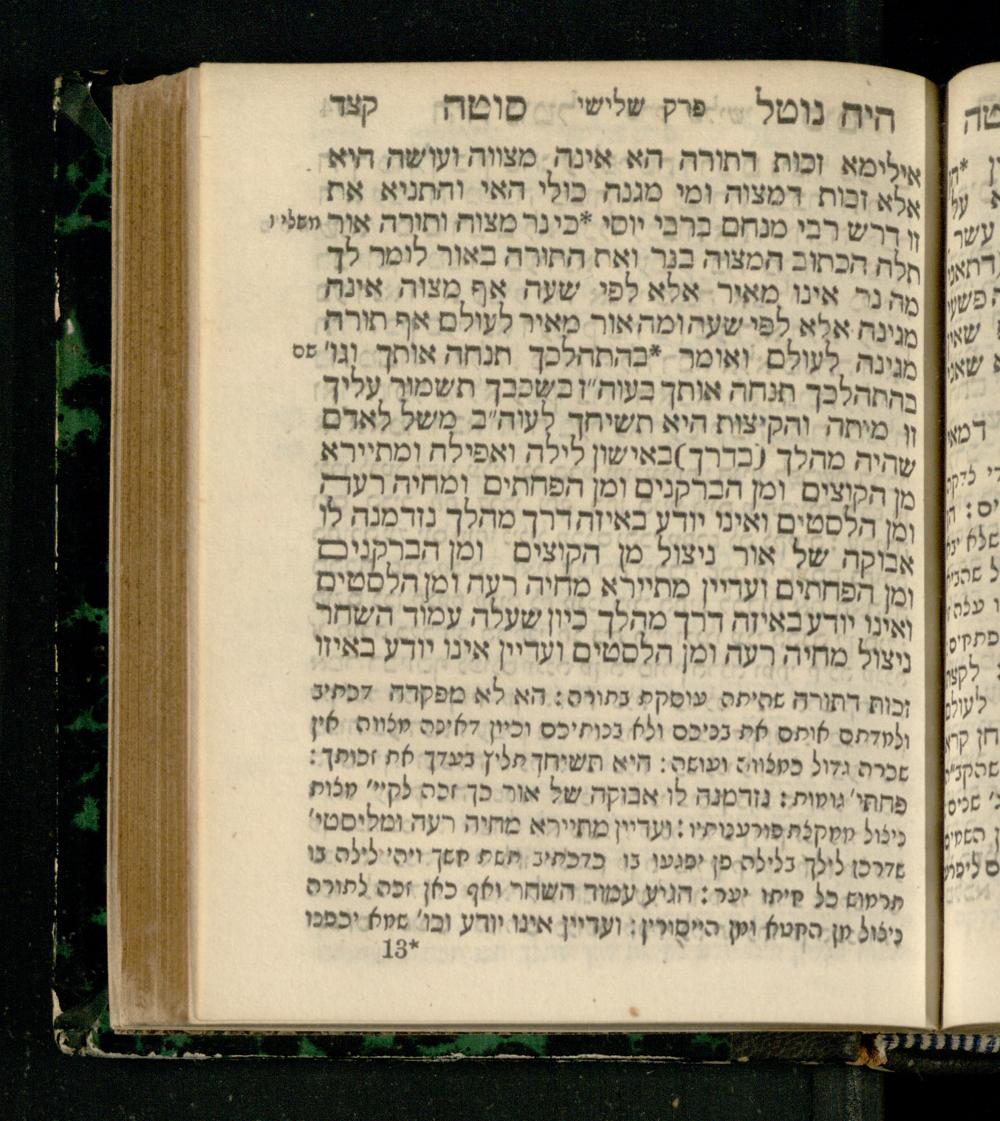 היה נוטל פרק שלישי סוטה קצד
אילימא זכות דתורה הא אינה מצווה ועושה היא
אלא זכות דמצוה ומי מגנה כולי האי והתניא את
זו דרש רבי מנחם ברבי יוסי *כי נר מצוה ותורה אור משלי ו
תלה הכתוב המצוה בנר ואת התורה באור לומר לך
מה נר אינו מאיר אלא לפי שעה אף מצוה אינה
מגינה אלא לפי שעה ומה אור מאיר לעולם אף תורה
מגינה לעולם ואומר *בהתהלכך תנחה אותך וגו' שם
בהתהלכך תנחה אותך בעוה"ז בשכבך תשמור עליך
זו מיתה והקיצות היא תשיחך לעוה"ב משל לאדם
שהיה מהלך (בדרך) באישון לילה ואפילה ומתיירא
מן הקוצים ומן הברקנים ומן הפחתים ומחיה רעה
ומן הלסטים ואינו יודע באיזה דרך מהלך נזדמנה לו
אבוקה של אור ניצול מן הקוצים ומן הברקנים
ומן הפחתים ועדיין מתיירא מחיה רעה ומן הלסטים
ואינו יודע באיזה דרך מהלך כיון שעלה עמוד השחר
ניצול מחיה רעה ומן הלסטים ועדיין אינו יודע באיזו
זכות דתורה שהיתה עוסקת בתורה: הא לא מפקדה דכתיב
ולמדתם אותם את בניכם ולא בנותיכם וכיון דאינה מצווה אין
שכרה גדול כמצווה ועושה: היא תשיחך תליץ בעדך את זכותך:
פחתי' גומות: נזדמנה לו אבוקה של אור כך זכה לקיי' מצות
ניצול ממקצת פורענותיו: ועדיין מתיירא מחיה רעה ומליסטי'
שדרכן לילך בלילה פן יפגעו בו כדכתיב תשת חשך ויהי לילה בו
תרמוש כל חיתו יער: הגיע עמוד השחר ואף כאן זכה לתורה
ניצול מן החטא ומן הייסורין: ועדיין אינו יודע וכו' שמא יכפנו
13*